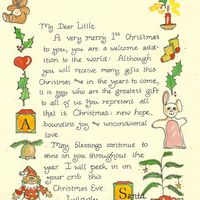 My Dear Little
A very merry 1st Christmas
to you, you are a welcome addi-
tion to the world! Although
you will receive many gifts this
Christmas in the years to come,
it is you who are the greatest gift
to all of us. You represent all
that is Christmas: new hope,
boundless joy unconditional
love.
May blessings continue to
shine on you throughout the
year. I will peek in on
your crib this
Christmas Eve.
Santa
A